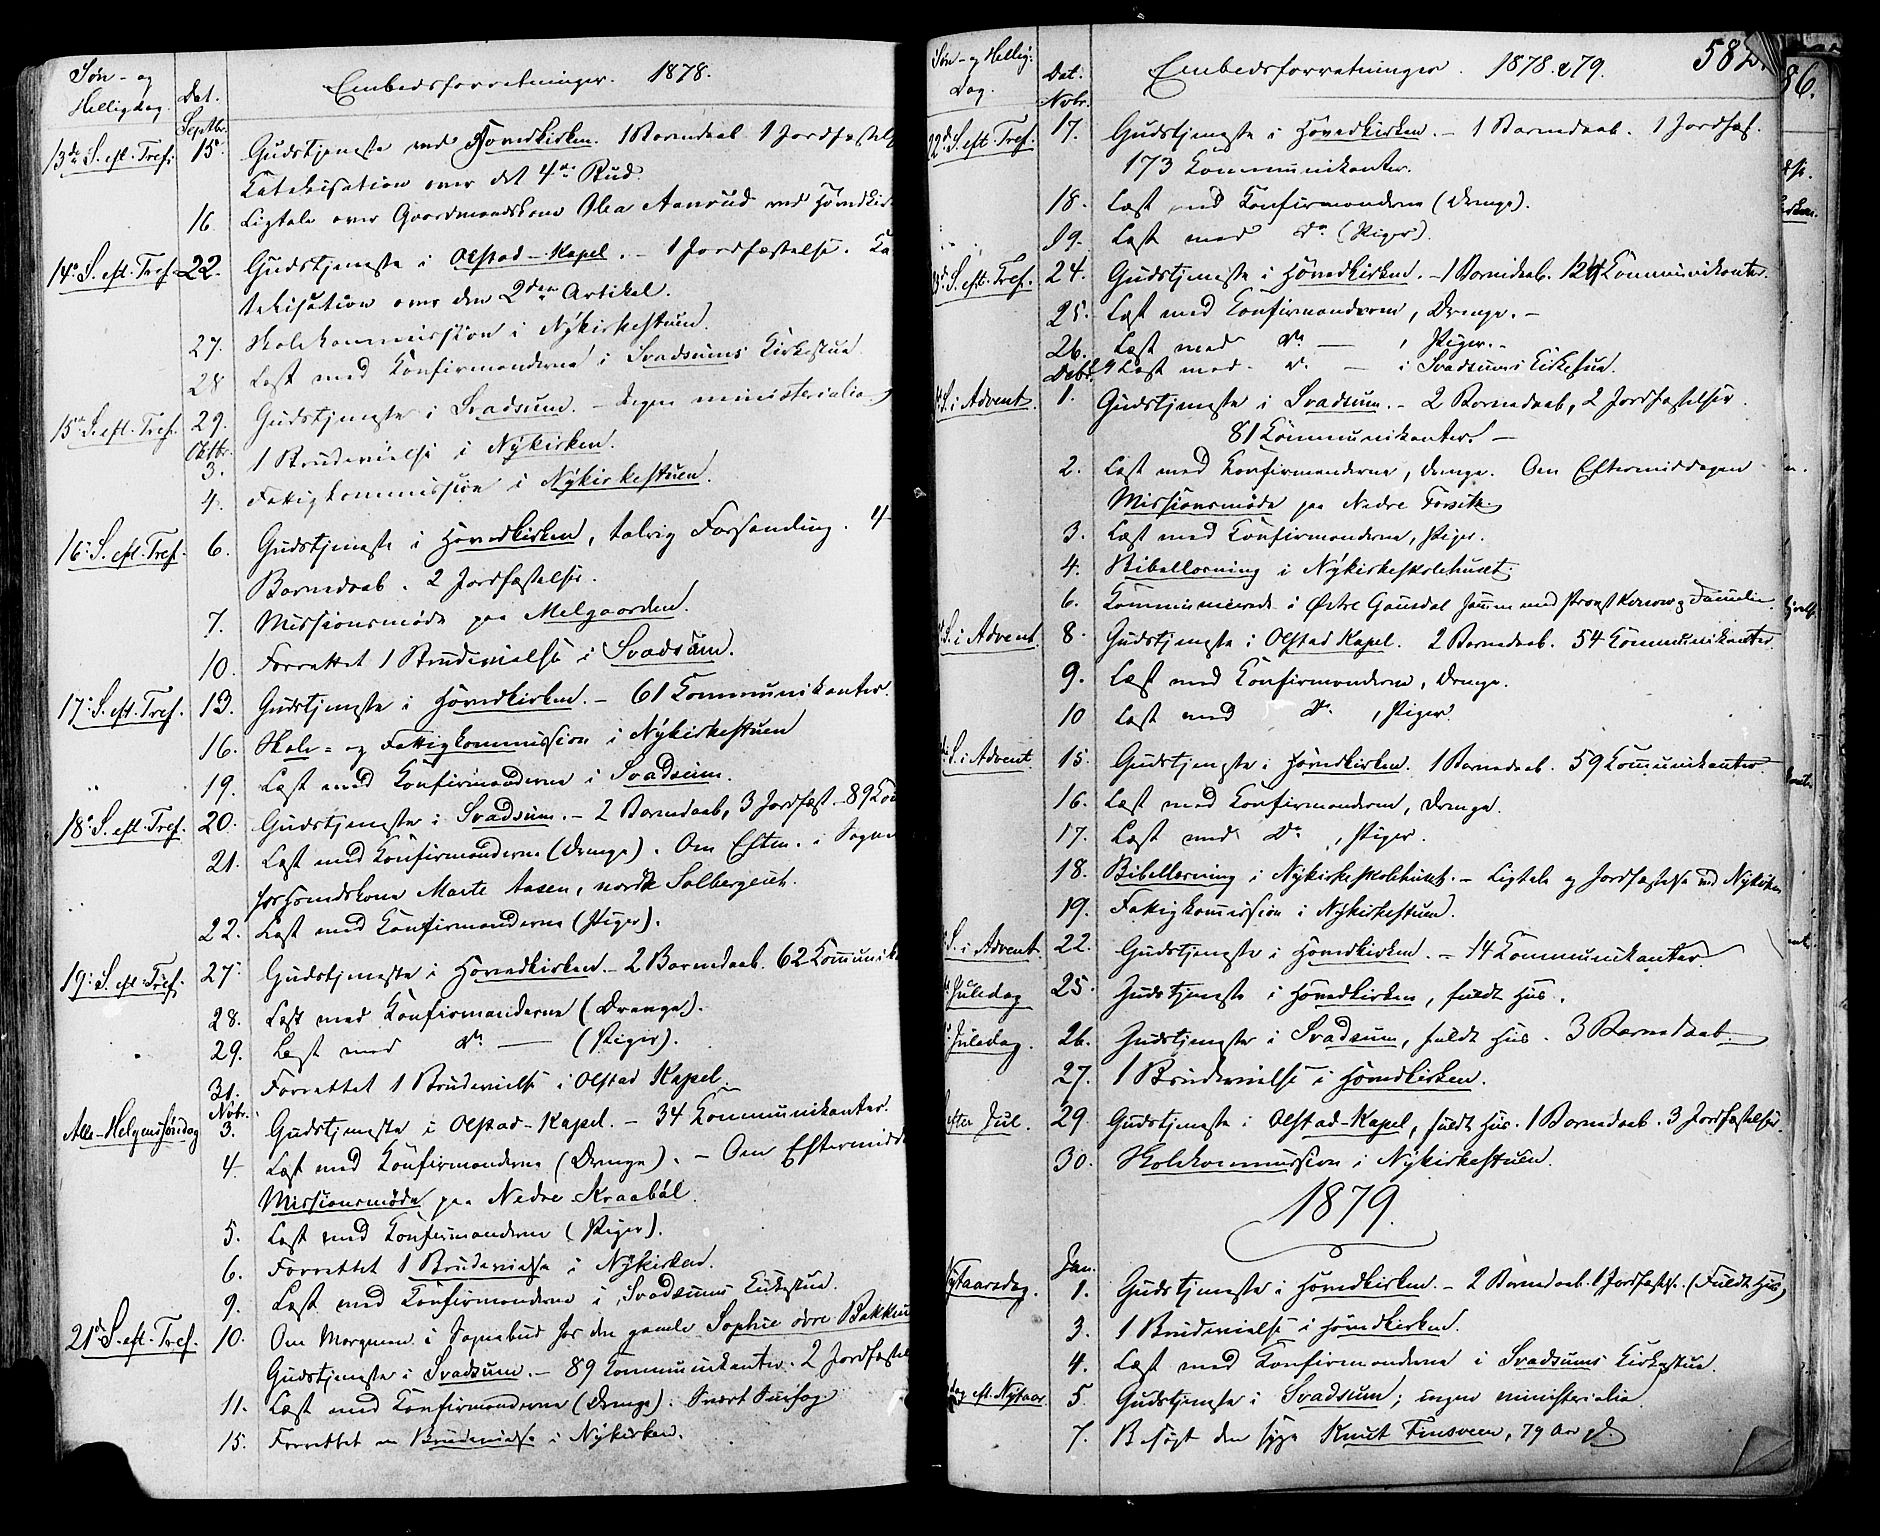 Søn- og
Helligdag.
Dat.
Septbr.
Embedsforretninger. 1878.
13de S. eft. Tref.
15.
Gudstjeneste ved Hovedkirken. 1 Barnedaab 1 Jordfæstelse
Katekisation over det 4de Bud.
16.
Ligtale over Gaardmandskone Olea Aanrud ved Hovedkir
14de S. eft. Tref.
22.
Gudstjeneste i Olstad-Kapel. - 1 Jordfæstelse. Ka
tekisation over den 2den Artikel.
27.
Skolekommission i Nykirkestuen.
28
Læst med Konfirmanderne i Svadsums Kirkestue
15de S. eft. Tref.
29.
Gudstjeneste i Svadsum. - Ingen ministerialia.
Oktbr.
3.
1 Brudevielse i Nykirken.
4.
Fattigkommission i Nykirkestuen.
16. S. eft. Tref.
6.
Gudstjeneste i Hovedkirken, talrig Forsamling. 4
Barnedaab. 2 Jordfæstelser.
7.
Missionsmøde paa Melgaarden.
10.
Forrettet 1 Brudevielse i Svadsum.
17. S. eft. Tref.
13.
Gudstjeneste i Hovedkirken. - 61 Kommunikanter.
16.
Skole- og Fattigkommission i Nykirkestuen
19.
Læst med Konfirmanderne i Svadsum.
18. S. eft. Tref.
20.
Gudstjeneste i Svadsum. - 2 Barnedaab, 3 Jordfæst. - 89 Kom
21.
Læst med Konfirmanderne (Drenge). Om Efterm. i Sogne
hos Marte Aasen, nordre Solbergeie.
22.
Læst med Konfirmanderne (Piger).
19. S. eft. Tref.
27.
Gudstjeneste i Hovedkirken - 2 Barnedaab. 62 Kommunika
28.
Læst med Konfirmanderne (Drenge).
29.
Læst med do — (Piger).
31.
Forrettet 1 Brudevielse i Olstad Kapel.
Nvbr.
Alle-Helgenssøndag
3.
Gudstjeneste i Olstad-Kapel. - 34 Kommunikanter.
4.
Læst med Konfirmanderne (Drenge). - Om Eftermidd
Missionsmøde paa Nedre Kraabøl.
5.
Læst med Konfirmanderne (Piger).
6.
Forrettet 1 Brudevielse i Nykirken.
9.
Læst med Konfirmanderne i Svadsums Kirkestue.
21de S. eft. Tref.
10.
Om Morgenen i Sognebud hos den gamle Sophie øvre Bakken
Gudstjeneste i Svadsum. - 89 Kommunikanter. 2 Jordfæstel
11.
Læst med Konfirmanderne (Drenge). Svært Snefog
15.
Forrettet en Brudevielse i Nykirken.
Søn- og Hellig-
Dag.
Dat.
Nvbr.
Embedsforretninger. 1878 & 79.
582.
22de S. eft. Tref.
17.
Gudstjeneste i Hovedkirken. - 1 Barnedaab. 1 Jordfæst.
173 Kommunikanter.
18.
Læst med Konfirmanderne (Drenge).
19.
Læst med do (Piger).
23de S. eft. Tref.
24.
Gudstjeneste i Hovedkirken. - 1 Barnedaab. 124 Kommunikanter.
25.
Læst med Konfirmanderne, Drenge. -
26.
Læst med do — , Piger. -
Debr.
Læst med do — i Svadsums Kirkestue.
S. i Advent.
1.
Gudstjeneste i Svadsum. - 2 Barnedaab, 2 Jordfæstelser.
81 Kommunikanter. -
2.
Læst med Konfirmanderne, Drenge. Om Eftermiddagen
Missionsmøde paa Nedre Forseth.
3.
Læst med Konfirmanderne, Piger.
4.
Bibellæsning i Nykirkeskolehuset.
6.
Kommunicerede i Østre Gausdal sammen med Provst og Familie.
S. i Advent.
8.
Gudstjeneste i Olstad Kapel. 2 Barnedaab. 54 Kommunikanter
9.
Læst med Konfirmanderne, Drenge.
10
Læst med do , Piger.
S. i Advent.
15.
Gudstjeneste i Hovedkirken. 1 Barnedaab. 59 Kommunikanter
16.
Læst med Konfirmanderne, Drenge.
17.
Læst med do , Piger.
18.
Bibellæsning i Nykirkeskolehuset. - Ligtale og Jordfæstelse ved Nykirken
19.
Fattigkommission i Nykirkestuen.
S. i Advent.
22.
Gudstjeneste i Hovedkirken. - 14 Kommunikanter.
Juledag
25.
Gudstjeneste i Hovedkirken, fuldt Hus.
Juledag.
26.
Gudstjeneste i Svadsum, fuldt Hus. 3 Barnedaab.
27.
1 Brudevielse i Hovedkirken.
efter Jul.
29
Gudstjeneste i Olstad-Kapel, fuldt Hus. 1 Barnedaab. 3 Jordfæstelser.
30.
Skolekommission i Nykirkestuen.
1879.
Jan.
Nytaarsdag.
1.
Gudstjeneste i Hovedkirken. - 2 Barnedaab. 1 Jordfæst. (Fuldt Hus)
3.
1 Brudevielse i Hovedkirken.
4.
Læst med Konfirmanderne i Svadsums Kirkestue.
eft. Nytaar
5.
Gudstjeneste i Svadsum; ingen ministerialia.
7.
Besøgt den syge Knut Finsveen, 79 Aar gl.
86.